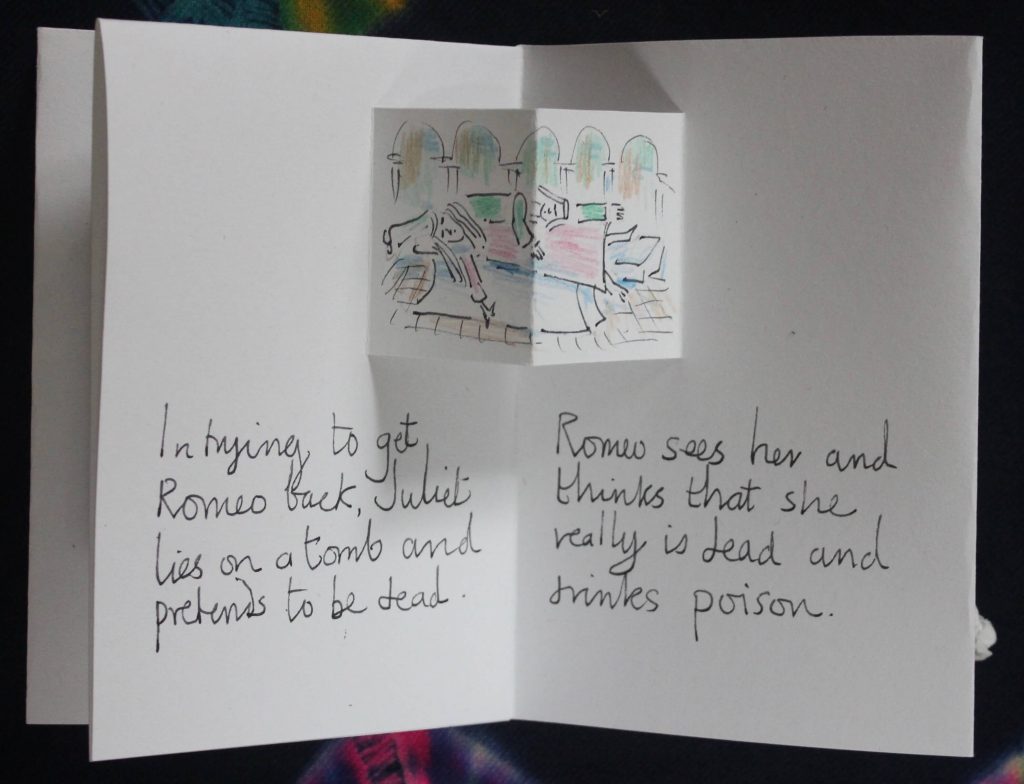 In trying to get
Romeo back, Juliet
lies on a tomb and
pretends to be dead.
Romeo sees her and
thinks that she
really is dead and
drinks poison.